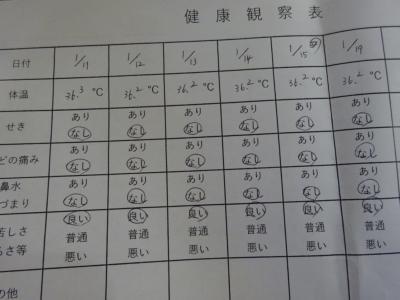 健康観察表
日付 1/11 1/12 1/13 1/14 1/15 1/19
体温 36.3 ℃ 36.2 ℃ 36.2 ℃ 36.2 ℃ 36.2 ℃ 36.2 ℃
あり あり あり あり あり あり
せき
なし なし なし なし なし なし
あり あり あり あり あり あり
どの痛み
なし なし なし なし なし なし
鼻水 あり あり あり あり あり あり
づまり なし なし なし なし なし なし
良い 良い 良い 良い 良い 良い
苦しさ 普通 普通 普通 普通 普通 普通
るさ等 悪い 悪い 悪い 悪い 悪い 悪い
の他